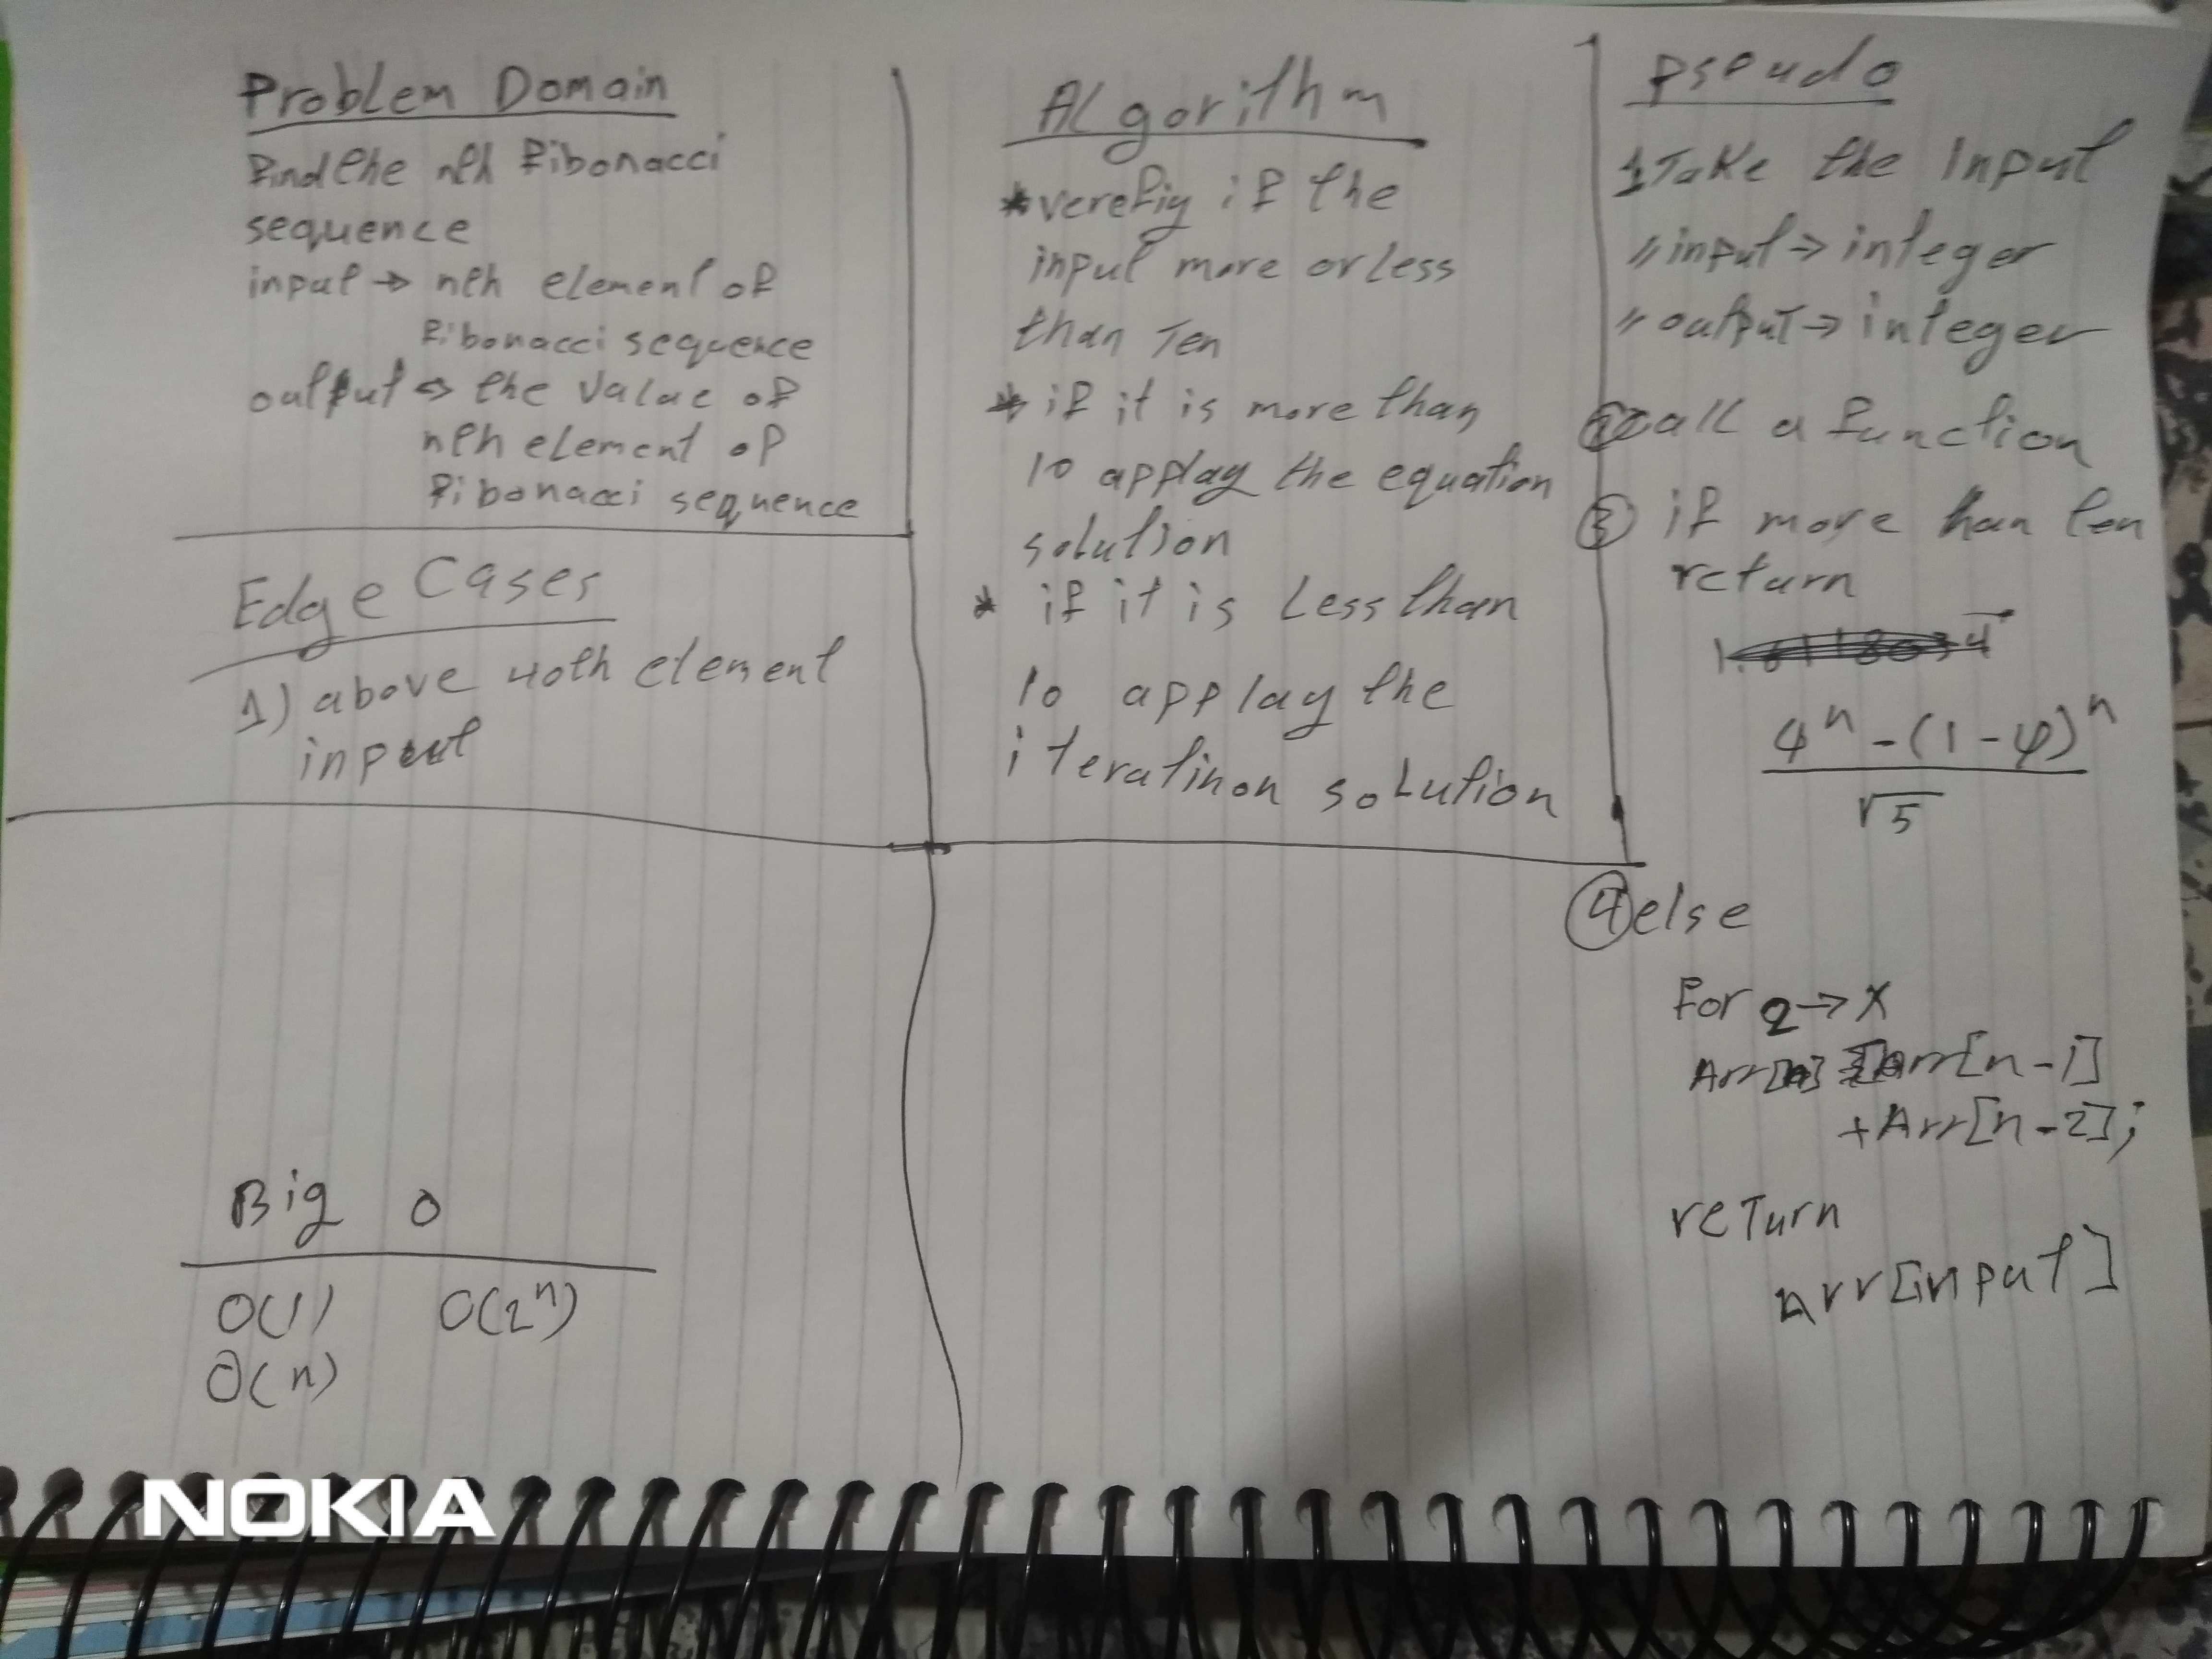 Problem Domain
Find the nth Fibonacci
sequence
input → nth element of
Fibonacci sequence
output ⇒ the value of
nth element of
Fibonacci sequence
Edge Cases
1) above 40th element
input
Big O
O(1) O(2ⁿ)
O(n)
Algorithm
*verefiy if the
input more or less
than Ten
* if it is more than
10 applay the equation
solution
* if it is less than
10 applay the
iteratinon solution
Pseudo
1 Take the Input
// input ⇒ integer
// output ⇒ integer
② call a function
③ if more han ten
return
φⁿ - (1 - φ)ⁿ
√5
④ else
For 2 → X
Arr[n] = arr[n-1]
+Arr[n-2];
return
Arr[input]
NOKIA